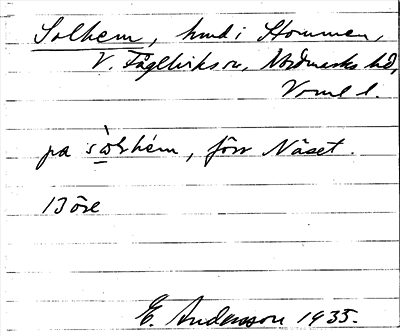 Solhem, hmd i Stommen,
V. Fågelviks sn, Nordmarks hd,
Värml l.
pa sòlhém, förr Näset.
13 öre
E. Andersson 1935.